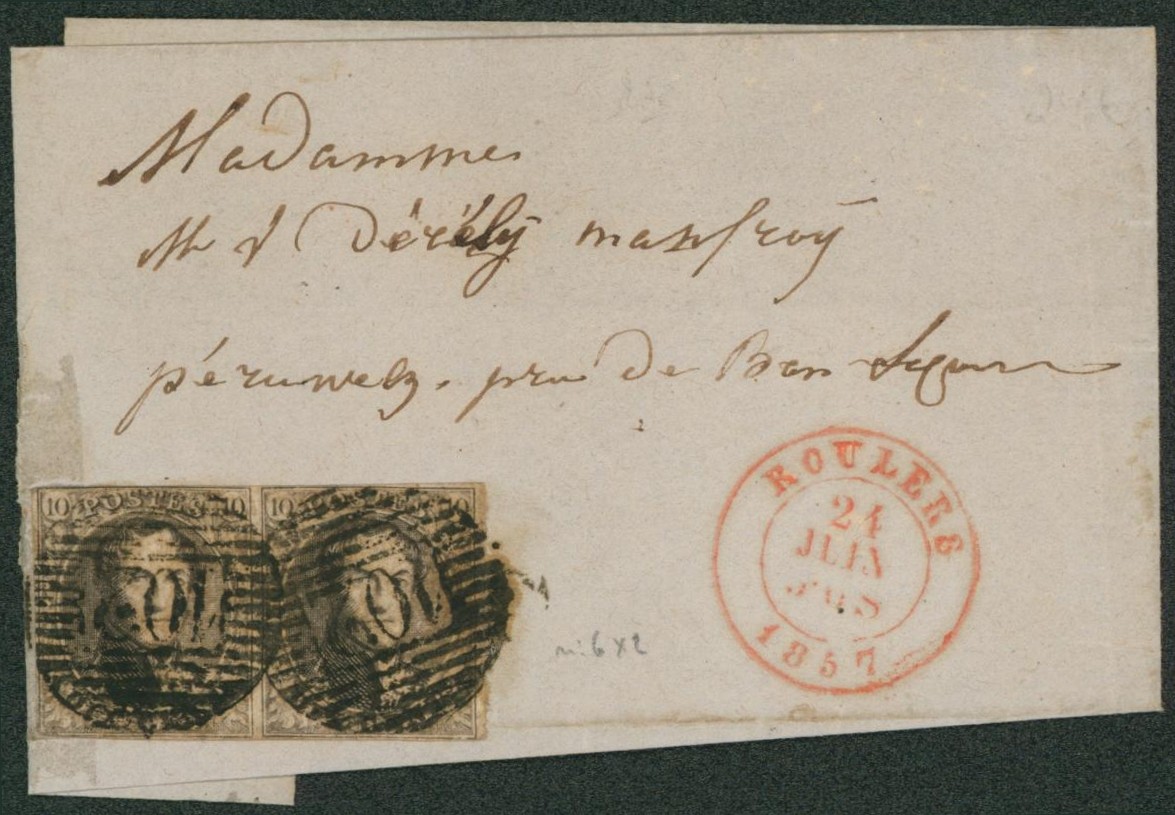 Madammes
M d Dérély manfroÿ
péruwelz. près de Bon Secours
10 POSTES 10
10 POSTES 10
ROULERS
24
JUIN
1857
n: 6 x 2